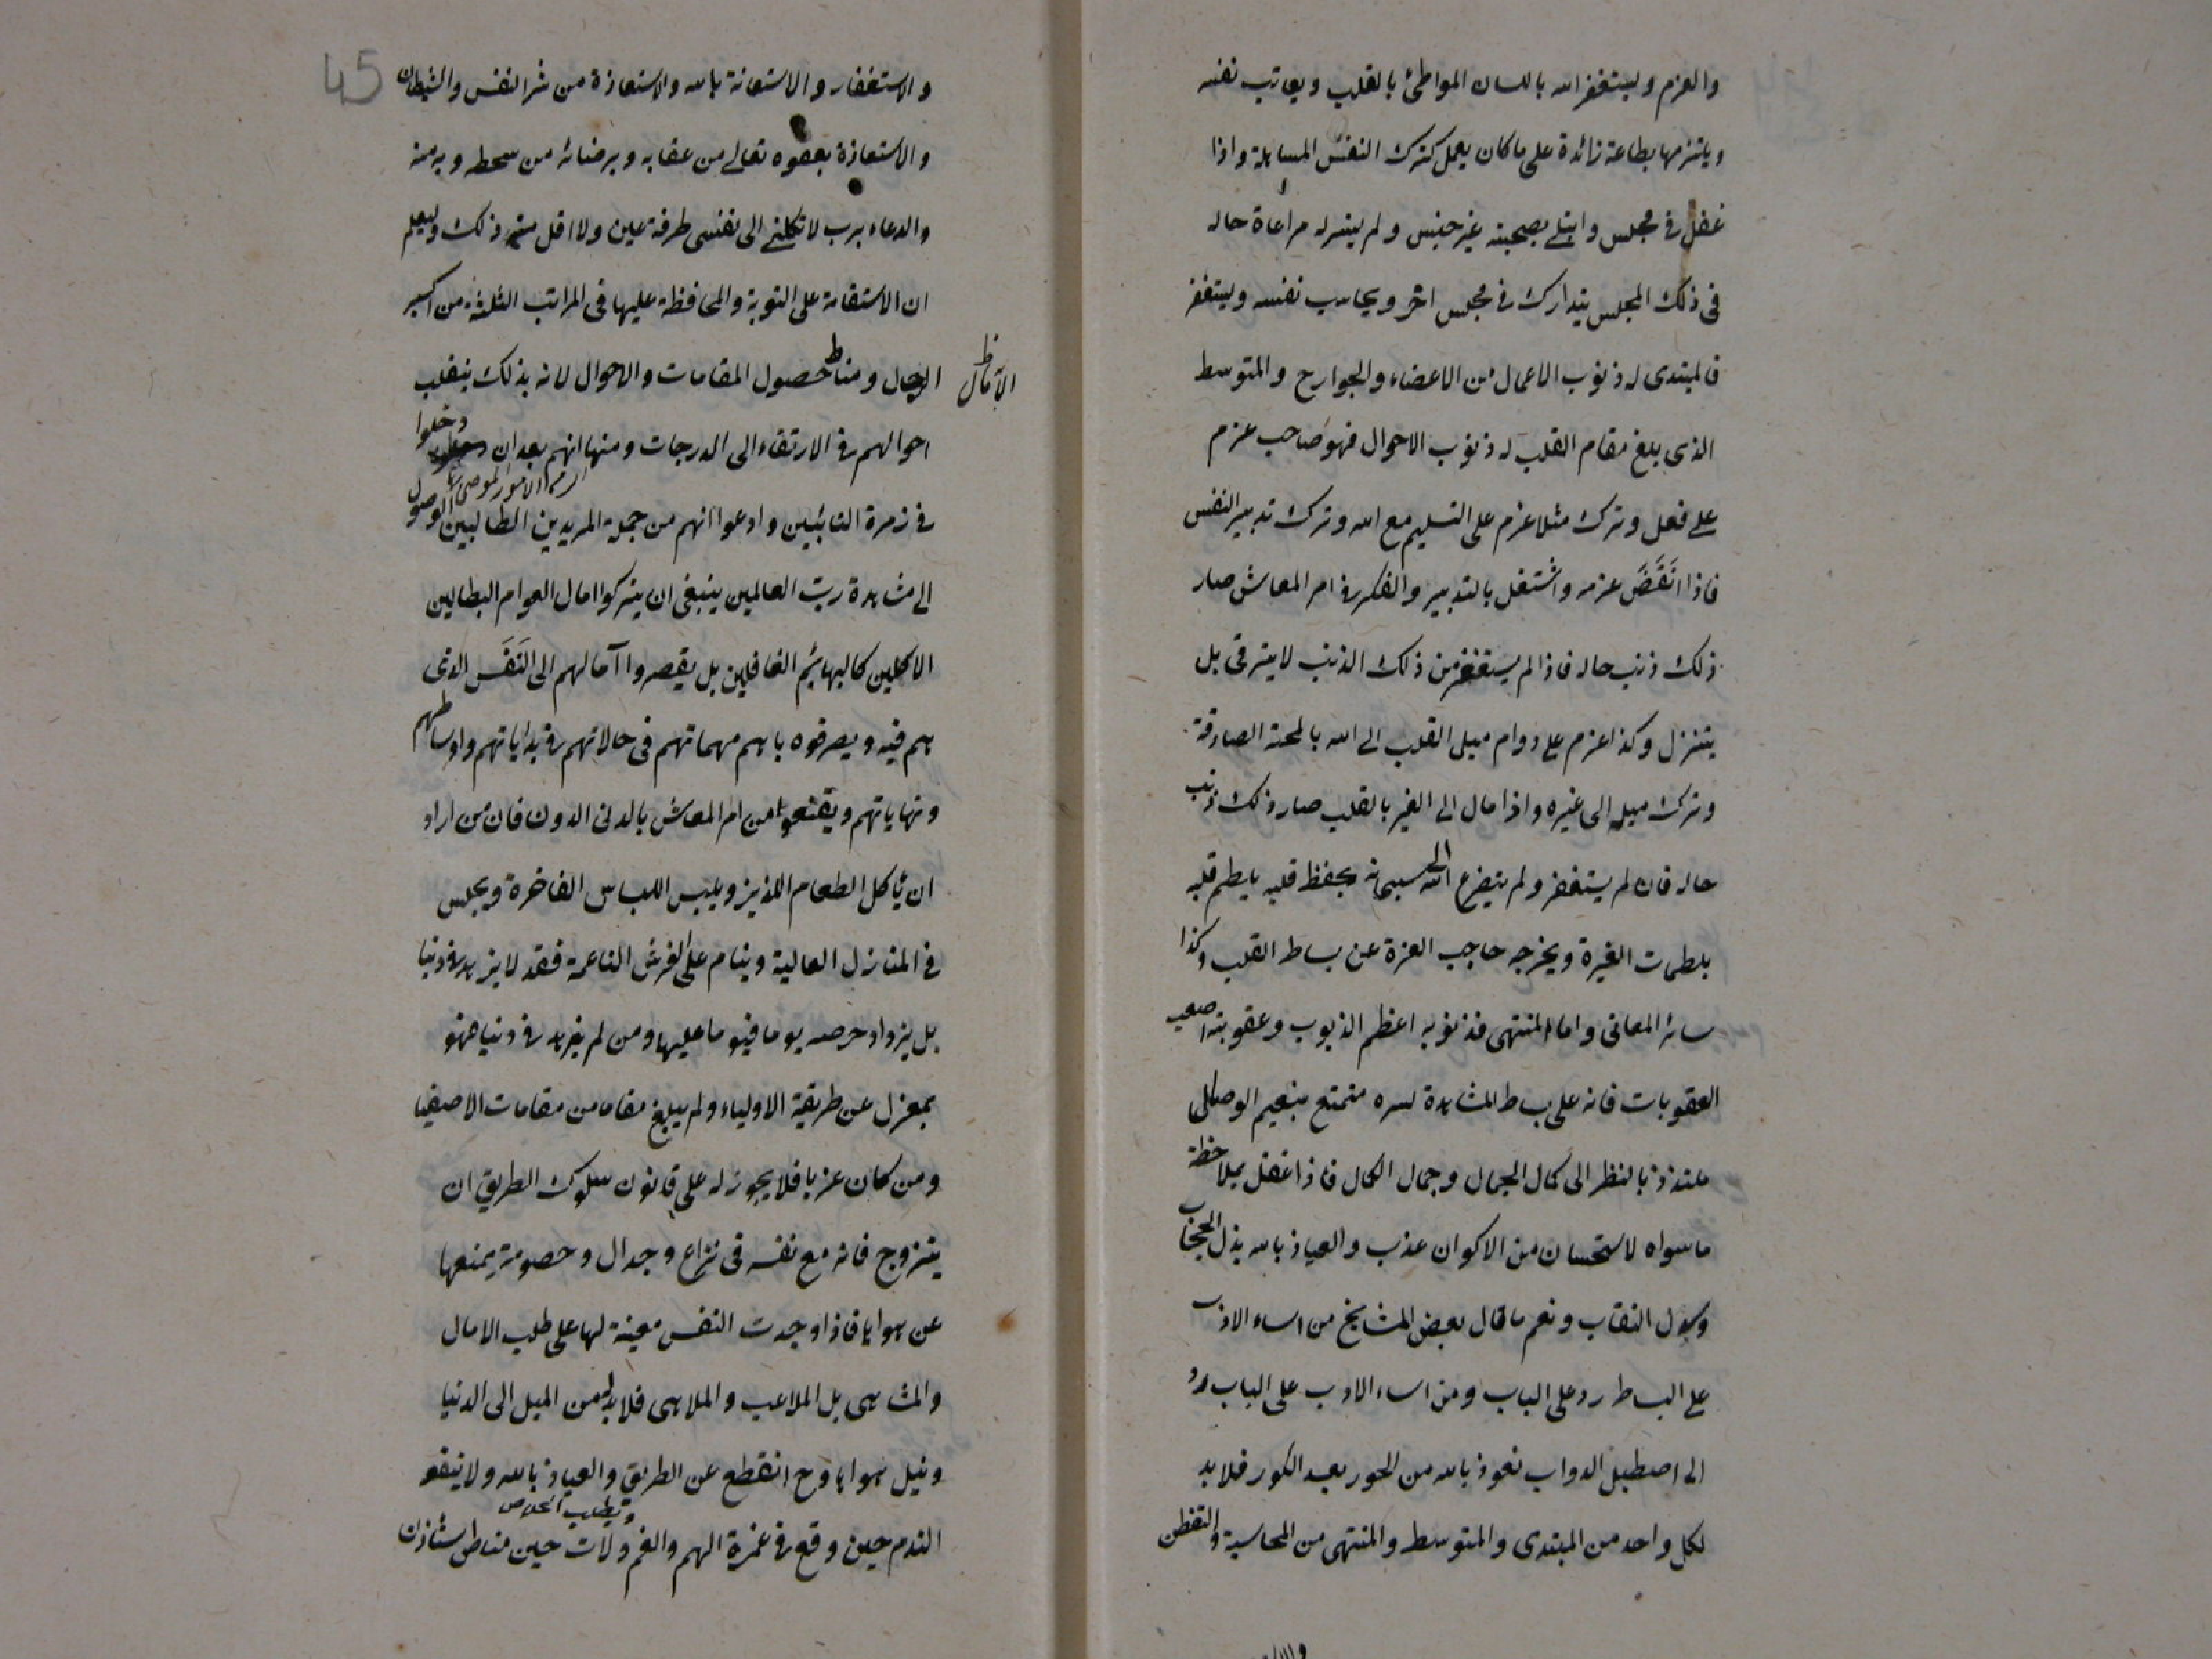 والعزم وليستغفر الله باللسان المواطئ بالقلب ويعاتب نفسه
ويلتزمها بطاعة زائدة على ما كان يعمل كترك النفس المسايلة واذا
غفل في مجلس وابتلى بصحبته غير جنس ولم يتيسر له مراعاة حاله
في ذلك المجلس يتدارك في مجلس اخر ويحاسب نفسه ويستغفر
فالمبتدى له ذنوب الاعمال من الاعضاء والجوارح والمتوسط
الذى بلغ مقام القلب له ذنوب الاحوال فهو صاحب عزم
على فعل وترك مثلا عزم على التسليم مع الله وترك تدبير النفس
فاذا انقَضَ عزمه واشتغل بالتدبير والفكر في امر المعاش صار
ذلك ذنب حاله فاذا لم يستغفر من ذلك الذنب لا يترقى بل
يتنزل وكذا عزم على دوام ميل القلب الى الله بالمحبة الصادقة
وترك ميله الى غيره واذا مال الى الغير بالقلب صار ذلك ذنب
حاله فان لم يستغفر ولم يتضرع الى الله سبحانه بحفظ قلبه يلطم قلبه
بلطمات الغيرة ويخرجه حاجب العزة عن بساط القلب وكذا
سائر المعانى واما المنتهى فذنوبه اعظم الذنوب وعقوبته اصعب
العقوبات فانه على بساط المشاهدة لسره متمتع بنعيم الوصال
ملتذذ بالنظر الى كمال الجمال وجمال الكمال فاذا غفل بملاحظة
ما سواه لاستحسان من الاكوان عذب والعياذ بالله بذل الحجاب
وسدل النقاب ونعم ما قال بعض المشايخ من اساء الادب
على البساط رد على الباب ومن اساء الادب على الباب رد
الى اصطبل الدواب نعوذ بالله من الحور بعد الكور فلا بد
لكل واحد من المبتدى والمتوسط والمنتهى من المحاسبة والتفطن
45
والاستغفار والاستعانة بالله والاستعاذة من شر النفس والشيطان
والاستعاذة بعفوه تعالى من عقابه وبرضائه من سخطه وبه منه
والدعاء برب لا تكلنى الى نفسى طرفة عين ولا اقل من ذلك وليعلم
ان الاستقامة على التوبة والمحافظة عليها فى المراتب الثلثة من اكسير
الرجال ومناط حصول المقامات والاحوال لانه بذلك ينقلب
احوالهم في الارتقاء الى الدرجات ومنها انهم بعد ان دخلوا
في زمرة التائبين وادعوا انهم من جملة المريدين الطالبين الوصول
الى مشاهدة رب العالمين ينبغى ان يتركوا امال العوام البطالين
الاكلين كالبهائم الغافلين بل يقصروا آمالهم الى النَفَس الذى
هم فيه ويصرفوه باهم مهماتهم فى حالاتهم في بداياتهم واوساطهم
ونهاياتهم ويقنعوا من امر المعاش بالدنى الدون فان من اراد
ان يأكل الطعام اللذيذ ويلبس اللباس الفاخرة ويجلس
في المنازل العالية وينام على الفرش الناعمة فقد لا يزهد في دنيا
بل يزداد حرصه يوما فيوما عليها ومن لم يزهد في دنياه فهو
بمعزل عن طريقة الاولياء ولم يبلغ مقاما من مقامات الاصفيا
ومن كان عزبا فلا يجوز له على قانون سلوك الطريق ان
يتزوج فانه مع نفسه فى نزاع وجدال وخصومة يمنعها
عن هواها فاذا وجدت النفس معينة لها على طلب الامال
والمشاهى بل الملاعب والملاهى فلا بد له من الميل الى الدنيا
ونيل هواها وح انقطع عن الطريق والعياذ بالله ولا ينفع
ويطلب الخلاص
الندم حين وقع في غمرة الهم والغم ولات حين مناص